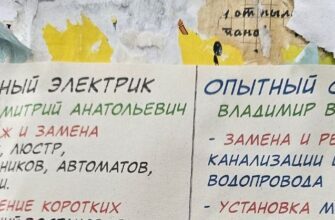 1 отны
нано
НЫЙ ЭЛЕКТРИК
МИТРИЙ АНАТОЛЬЕВИЧ
Ж И ЗАМЕНА
, ЛЮСТР,
НИКОВ, АВТОМАТОВ,
И.
ЕНИЕ КОРОТКИХ
ОПЫТНЫЙ С
ВЛАДИМИР В
- ЗАМЕНА И РЕ
КАНАЛИЗАЦИИ И
ВОДОПРОВОДА
- УСТАНОВКА М